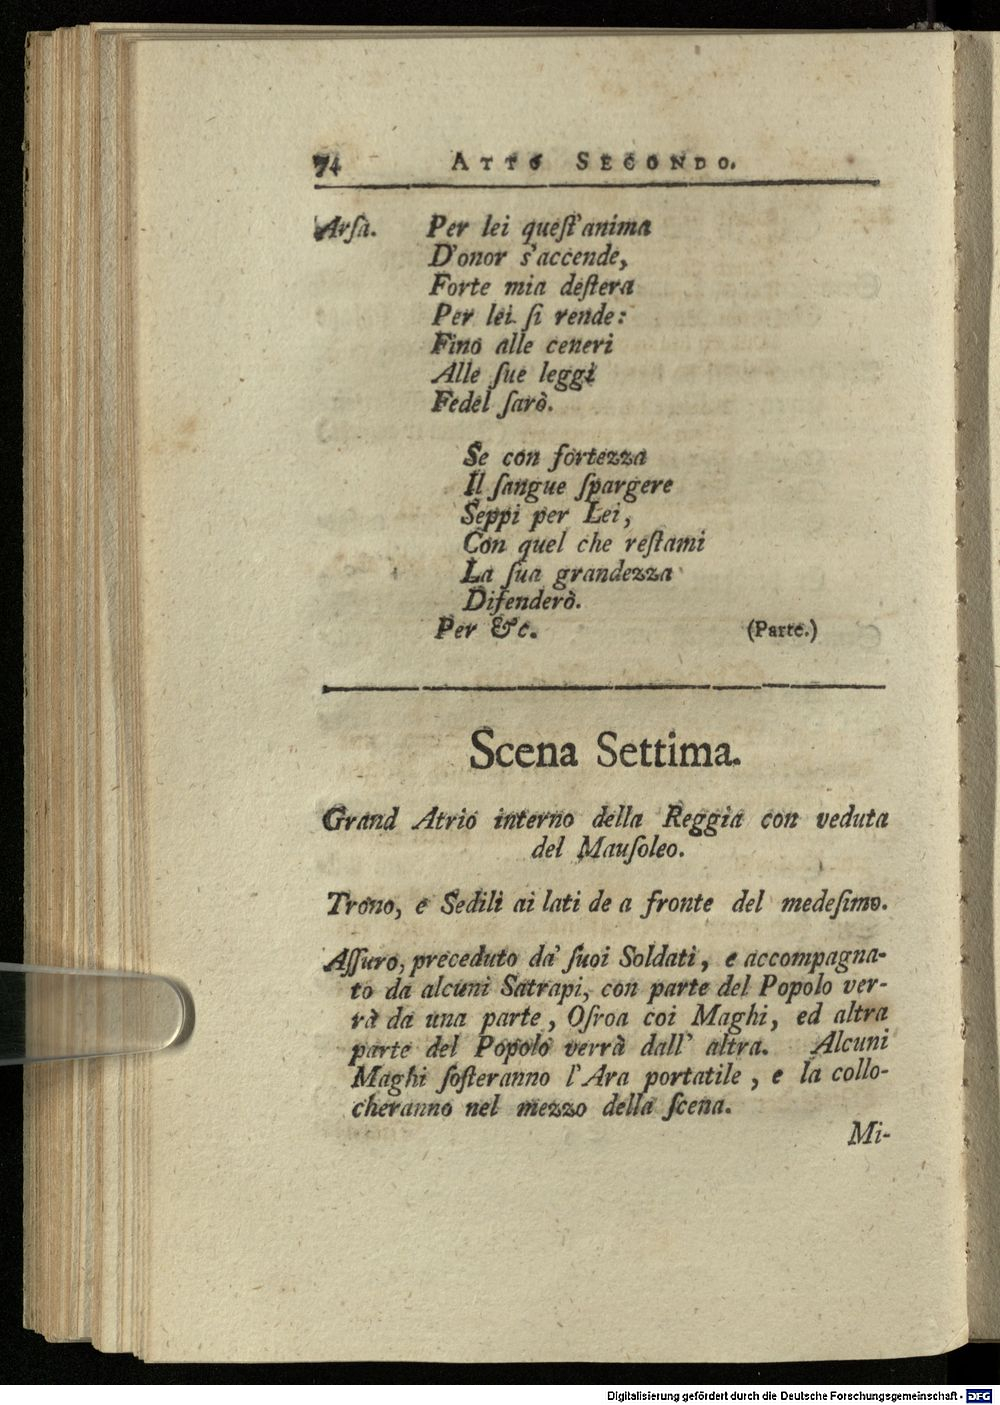 74 ATTO SECONDO.
Arſa. Per lei queſt'anima
D'onor s'accende,
Forte mia deſtera
Per lei ſi rende:
Fino alle ceneri
Alle ſue leggi
Fedel ſarò.
Se con fortezza
Il ſangue ſpargere
Seppi per Lei,
Con quel che reſtami
La ſua grandezza
Difenderò.
Per &c. (Parte.)
Scena Settima.
Grand Atrio interno della Reggia con veduta
del Mauſoleo.
Trono, e Sedili ai lati de a fronte del medeſimo.
Aſſuro, preceduto da' ſuoi Soldati, e accompagna-
to da alcuni Satrapi, con parte del Popolo ver-
rà da una parte, Oſroa coi Maghi, ed altra
parte del Popolo verrà dall' altra. Alcuni
Maghi ſoſteranno l'Ara portatile, e la collo-
cheranno nel mezzo della ſcena.
Mi-
Digitalisierung gefördert durch die Deutsche Forschungsgemeinschaft - DFG